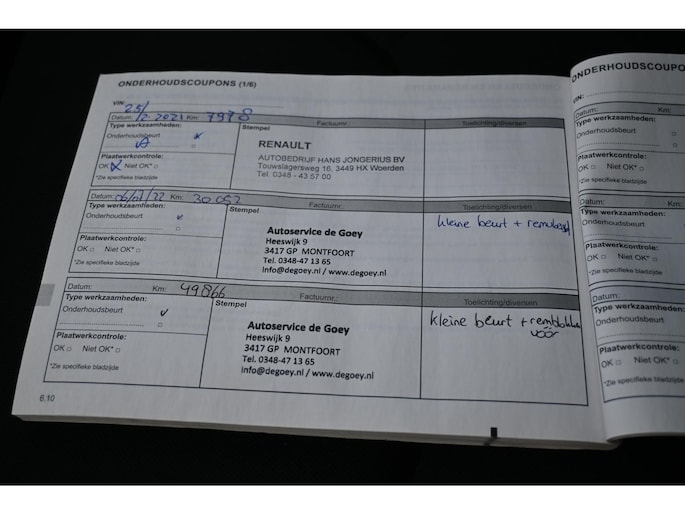 ONDERHOUDSCOUPONS (1/6)
VIN:
Datum: 25/ /2 2021 Km: 7978 Factuurnr. Toelichting/diversen
Type werkzaamheden: Stempel
Onderhoudsbeurt
RENAULT
AUTOBEDRIJF HANS JONGERIUS BV
Touwslagersweg 16, 3449 HX Woerden
Tel. 0348 - 43 57 00
Plaatwerkcontrole:
OK Niet OK*
*Zie specifieke bladzijde
Datum: Km: 30 052 Factuurnr.: Toelichting/diversen
Type werkzaamheden: Stempel
Onderhoudsbeurt
kleine beurt +
Autoservice de Goey
Heeswijk 9
3417 GP MONTFOORT
Tel. 0348-47 13 65
Info@degoey.nl / www.degoey.nl
Plaatwerkcontrole:
OK Niet OK*
*Zie specifieke bladzijde
Datum: Km: 49866 Factuurnr.: Toelichting/diversen
Type werkzaamheden: Stempel
Onderhoudsbeurt
kleine beurt + remblokken
vóór
Autoservice de Goey
Heeswijk 9
3417 GP MONTFOORT
Tel. 0348-47 13 65
info@degoey.nl / www.degoey.nl
Plaatwerkcontrole:
OK Niet OK*
*Zie specifieke bladzijde
6.10
VIN:
Datum: Km:
Type werkzaamheden:
Onderhoudsbeurt
Plaatwerkcontrole:
OK Niet OK*
*Zie specifieke bladzijde
Datum: Km:
Type werkzaamheden:
Onderhoudsbeurt
Plaatwerkcontrole:
OK Niet OK*
*Zie specifieke bladzijde
Datum:
Type werkzaamheden:
Onderhoudsbeurt
Plaatwerkcontrole:
OK Niet OK*
*Zie specifieke bladzijde